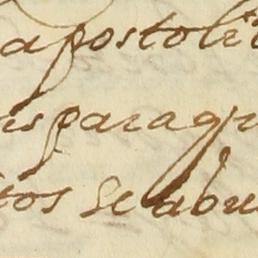 apostoli
is paraqu
tos se abu